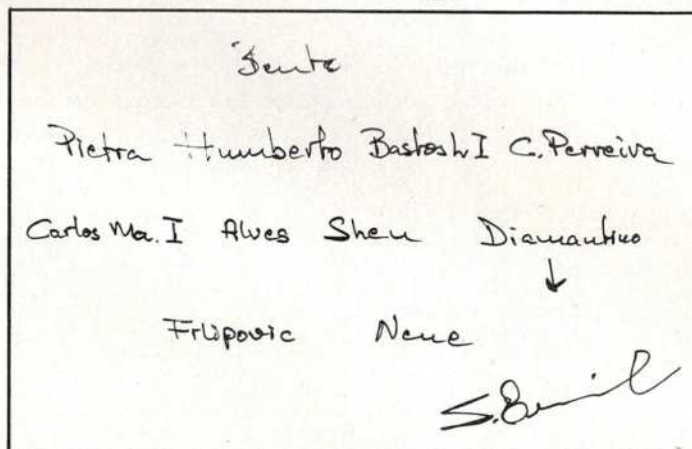 Bento
Pietra Humberto Bastos L I C. Perreiva
Carlos Ma. I Alves Sheu Diamantino
Filipovic Nene